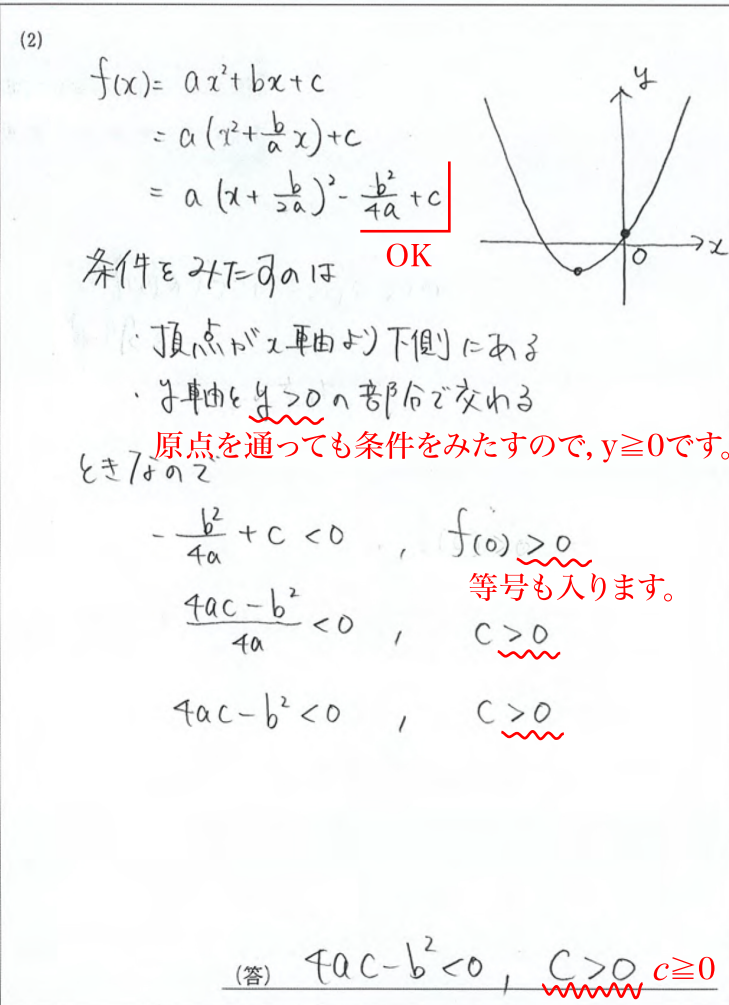 (2)
f(x)= ax²+bx+c
= a(x²+b/a x)+c
= a(x+b/2a)²-b²/4a+c
OK
y
x
O
条件をみたすのは
・頂点がx軸より下側にある
・y軸とy>0の部分で交わる
原点を通っても条件をみたすので, y≧0です。
ときなので
-b²/4a+c<0 , f(0)>0
等号も入ります。
4ac-b²/4a<0 , c>0
4ac-b²<0 , c>0
(答) 4ac-b²<0, c>0 c≧0